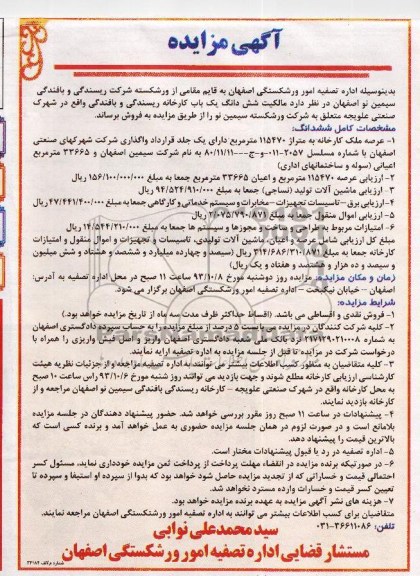 آگهی مزایده
بدینوسیله اداره تصفیه امور ورشکستگی اصفهان به قایم مقامی از ورشکسته شرکت ریسندگی و بافندگی
سیمین نو اصفهان در نظر دارد مالکیت شش دانگ یک باب کارخانه ریسندگی و بافندگی واقع در شهرک
صنعتی علویجه متعلق به شرکت ورشکسته سیمین نو را از طریق مزایده به فروش برساند.
مشخصات کامل ششدانگ:
۱- عرصه ملک کارخانه به متراژ ۱۱۵۴۷۰ مترمربع دارای یک جلد قرارداد واگذاری شرکت شهرکهای صنعتی
اصفهان با شماره مسلسل ۲۰۵۷-۰۱۱-و-ج-۸۰/۱۱/۱۱ به نام شرکت سیمین اصفهان و ۳۳۶۶۵ مترمربع
اعیانی (سوله و ساختمانهای اداری)
۲- ارزیابی عرصه ۱۱۵۴۷۰ مترمربع و اعیان ۳۳۶۶۵ مترمربع جمعا به مبلغ ۱۵۶/۱۰۰/۰۰۰/۰۰۰ ریال
۳- ارزیابی ماشین آلات تولید (نساجی) جمعا به مبلغ ۹۴/۵۲۴/۹۱۰/۰۰۰ ریال
۴- ارزیابی برق-تاسیسات تجهیزات-مخابرات و سیستم خدماتی و کارگاهی جمعا به مبلغ ۴۷/۴۴۱/۴۰۰/۰۰۰ ریال
۵- ارزیابی اموال منقول جمعا به مبلغ ۲/۰۷۵/۷۹۰/۸۷۱ ریال
۶- امتیازات مربوط به طراحی و نقشه و مجوزها و سیستم ها جمعا به مبلغ ۱۴/۵۴۴/۲۱۰/۰۰۰ ریال
مبلغ کل ارزیابی شامل عرصه و اعیان، ماشین آلات تولیدی، تاسیسات و تجهیزات و اموال منقول و امتیازات
کارخانه جمعا به مبلغ ۳۱۴/۶۸۶/۳۱۰/۸۷۱ ریال (سیصد و چهارده میلیارد و ششصد و هشتاد و شش میلیون
و سیصد و ده هزار و هشتصد و هفتاد و یک ریال)
زمان و مکان مزایده: مزایده روز دوشنبه مورخ ۹۳/۱۰/۸ ساعت ۱۱ صبح در محل اداره تصفیه به آدرس:
اصفهان - خیابان نیکبخت - اداره تصفیه امور ورشکستگی اصفهان برگزار می شود.
شرایط مزایده:
۱- فروش نقدی و اقساطی می باشد. (اقساط حداکثر ظرف مدت سه ماه از تاریخ مزایده خواهد بود.)
۲- کلیه شرکت کنندگان در مزایده می بایست ۵ درصد از مبلغ مزایده را به حساب سپرده دادگستری اصفهان
به شماره ۲۱۷۱۲۹۰۲۱۰۰۰۸ نزد بانک ملی شعبه دادگستری اصفهان واریز و اصل فیش واریزی را همراه با
درخواست شرکت در مزایده تا قبل از جلسه مزایده به اداره تصفیه ارایه نمایند.
۳- کلیه متقاضیان به منظور کسب اطلاعات بیشتر می توانند به اداره تصفیه مراجعه و از جزئیات نظریه هیئت
کارشناسی ارزیابی کارخانه مطلع شوند و جهت بازدید می توانند روز شنبه مورخ ۹۳/۱۰/۶ راس ساعت ۱۰ صبح
به محل کارخانه واقع در شهرک صنعتی علویجه - کارخانه ریسندگی بافندگی سیمین نو اصفهان مراجعه و از
کارخانه بازدید نمایند.
۴- پیشنهادات در ساعت ۱۱ صبح روز مقرر بررسی خواهد شد. حضور پیشنهاد دهندگان در جلسه مزایده
بلامانع است و در صورت لزوم در همان جلسه مزایده حضوری به عمل خواهد آمد و برنده کسی است که
بالاترین قیمت را پیشنهاد دهد.
۵- اداره تصفیه در رد یا قبول پیشنهادات مختار است.
۶- در صورتیکه برنده مزایده در انقضاء مهلت پرداخت از پرداخت ثمن مزایده خودداری نماید، مسئول کسر
احتمالی قیمت و خساراتی که از تجدید مزایده حاصل شود خواهد بود که بدوا از سپرده او استیفا و سپرده تا
تعیین کسر قیمت و خسارات وارده مسترد نخواهد شد.
۷- هزینه های نشر آگهی مزایده به عهده برنده مزایده خواهد بود.
متقاضیان برای کسب اطلاعات بیشتر می توانند به اداره تصفیه امور ورشکستگی اصفهان مراجعه نمایند.
تلفن: ۳۶۶۱۱۰۸۶-۰۳۱
سید محمدعلی نوابی
مستشار قضایی اداره تصفیه امور ورشکستگی اصفهان